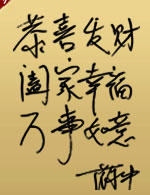 恭喜发财
阖家幸福
万事如意